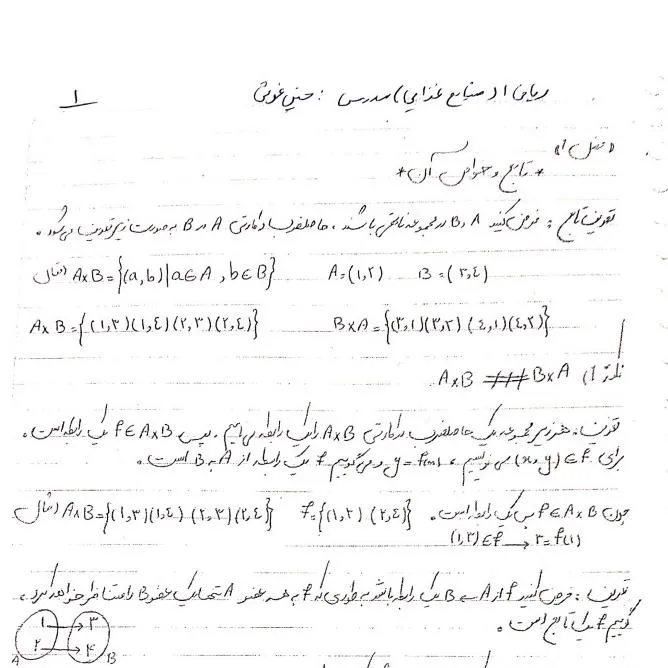 ریاضی ۱ (صنایع غذایی) مدرس : حسینی غوشی ۱
«فصل ۱»
* تابع و خواص آن *
تعریف تابع : فرض کنید A و B دو مجموعه ناتهی باشند ، حاصلضرب دکارتی A در B به صورت زیر تعریف می‌شود .
A×B={(a,b)|a∈A , b∈B} مثال A=(۱,۲) B=(۳,٤)
A×B={(۱,۳)(۱,٤)(۲,۳)(۲,٤)} B×A={(۳,۱)(۳,۲)(٤,۱)(٤,۲)}
نکته ۱) A×B ≠ B×A
تعریف : هر زیر مجموعه یک حاصلضرب دکارتی A×B را یک رابطه می‌نامیم . پس f∈A×B یک رابطه است .
برای (x,y)∈f می‌نویسیم ، y=f(x) و می‌گوییم f یک رابطه از A به B است .
مثال A×B={(۱,۳)(۱,٤)(۲,۳)(۲,٤)} f={(۱,۳)(۲,٤)} چون f∈A×B پس یک رابطه است .
(۱,۳)∈f → ۳=f(۱)
تعریف : فرض کنید f از A به B یک رابطه باشد به طوری که f به هر عنصر A تنها یک عضو B را متناظر خواهد کرد ،
گوییم f یک تابع است .
۱ → ۳
۲ → ۴
A B